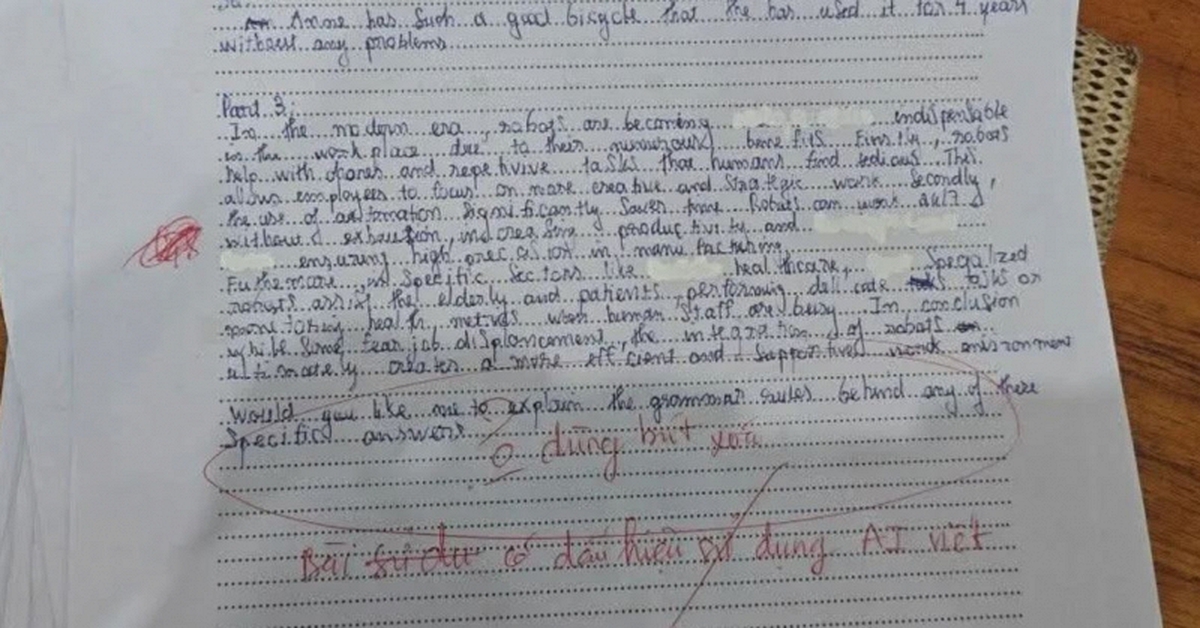 Anne has such a good bicycle that she has used it for 4 years
without any problems
Part 3:
In the modern era, robots are becoming indispentable
in the work place due to their numerous benefits. Firstly, robots
help with chores and repetivive tasks that humans find tedious. This
allows employees to focus on more creative and strategic work. Secondly,
the use of automation significantly saves time. Robots can work 24/7
without exhaustion, increasing productivity and
ensuring high precision in manufacturing.
Futhermore, in specific sectors like healthcare, Specialized
robots assist the elderly and patients, performing delicate tasks or
monitoring health metrics when human staff are busy. In conclusion
while some fear job displancement, the integration of robots
ultimately creates a more efficient and supportive work environment
Would you like me to explain the grammar rules behind any of these
specific answers
0 dùng bút xóa
Bài có dấu hiệu sử dụng AI viết